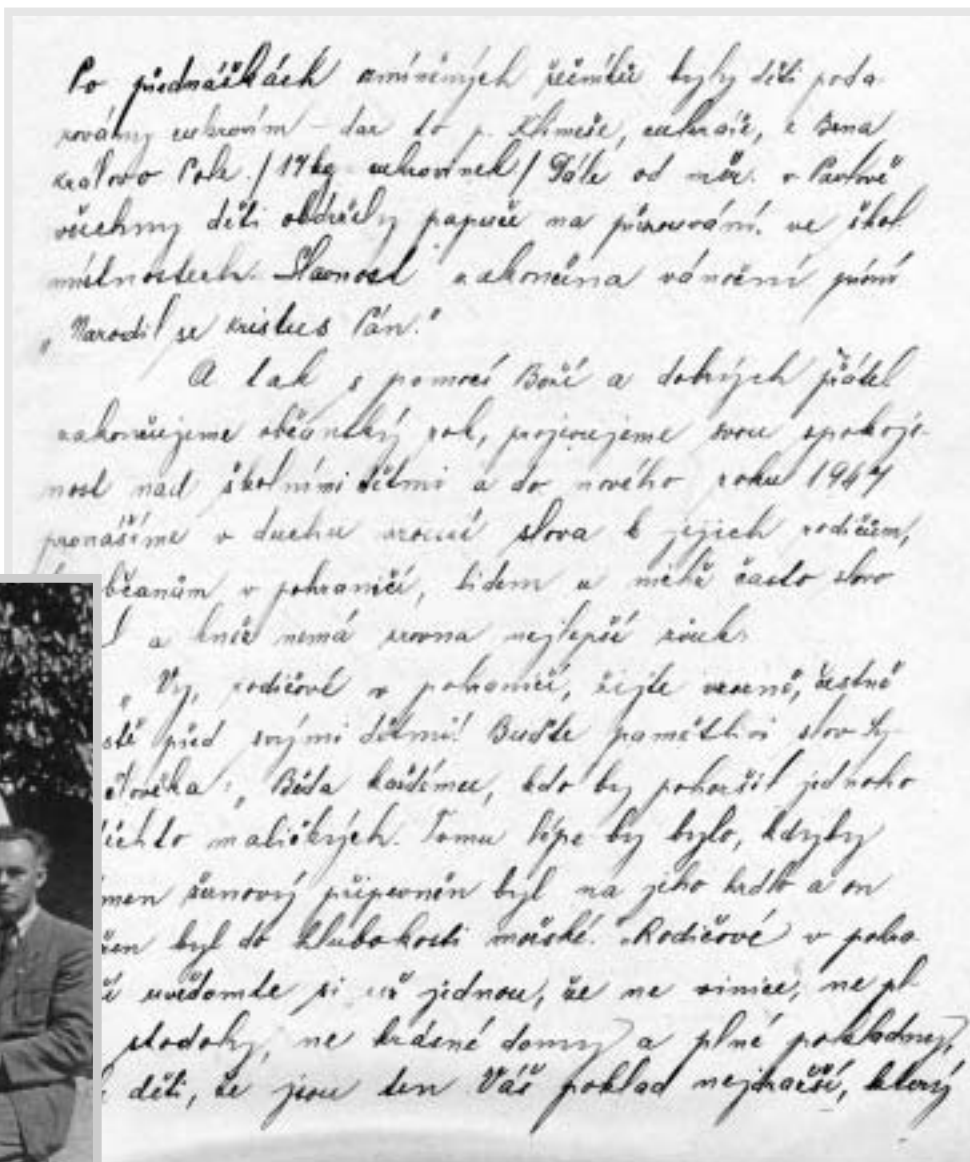 Po přednáškách zmíněných řečníků byly děti poda-
rovány cukrovím - dar to p. Klimeše, cukráře, z Brna
Královo Pole. / 17 kg cukrovinek / Dále od měšť. v Pavlově
všechny děti obdržely papuče na přezouvání ve škol.
místnostech. Slavnost zakončena vánoční písní
„Narodil se Kristus Pán."
A tak s pomocí Boží a dobrých přátel
zakončujeme občanský rok, projevujeme svou spokoje-
nost nad školními dětmi a do nového roku 1947
pronášíme v duchu vroucí slova k jejich rodičům,
občanům v pohraničí, lidem u nichž často slovo
a kněz nemá zrovna nejlepší zvuk.
„Vy, rodičové v pohraničí, žijte vzorně, čestně
stě před svými dětmi! Buďte pamětlivi slov Sy-
člověka: „Běda každému, kdo by pohoršil jednoho
těchto maličkých. Tomu lépe by bylo, kdyby
men žernový připevněn byl na jeho hrdlo a on
žen byl do hlubokosti mořské." Rodičové v pohra-
čí uvědomte si už jednou, že ne vinice, ne pl-
stodoly, ne krásné domy a plné pokladny,
děti, že jsou ten Váš poklad nejdražší, který